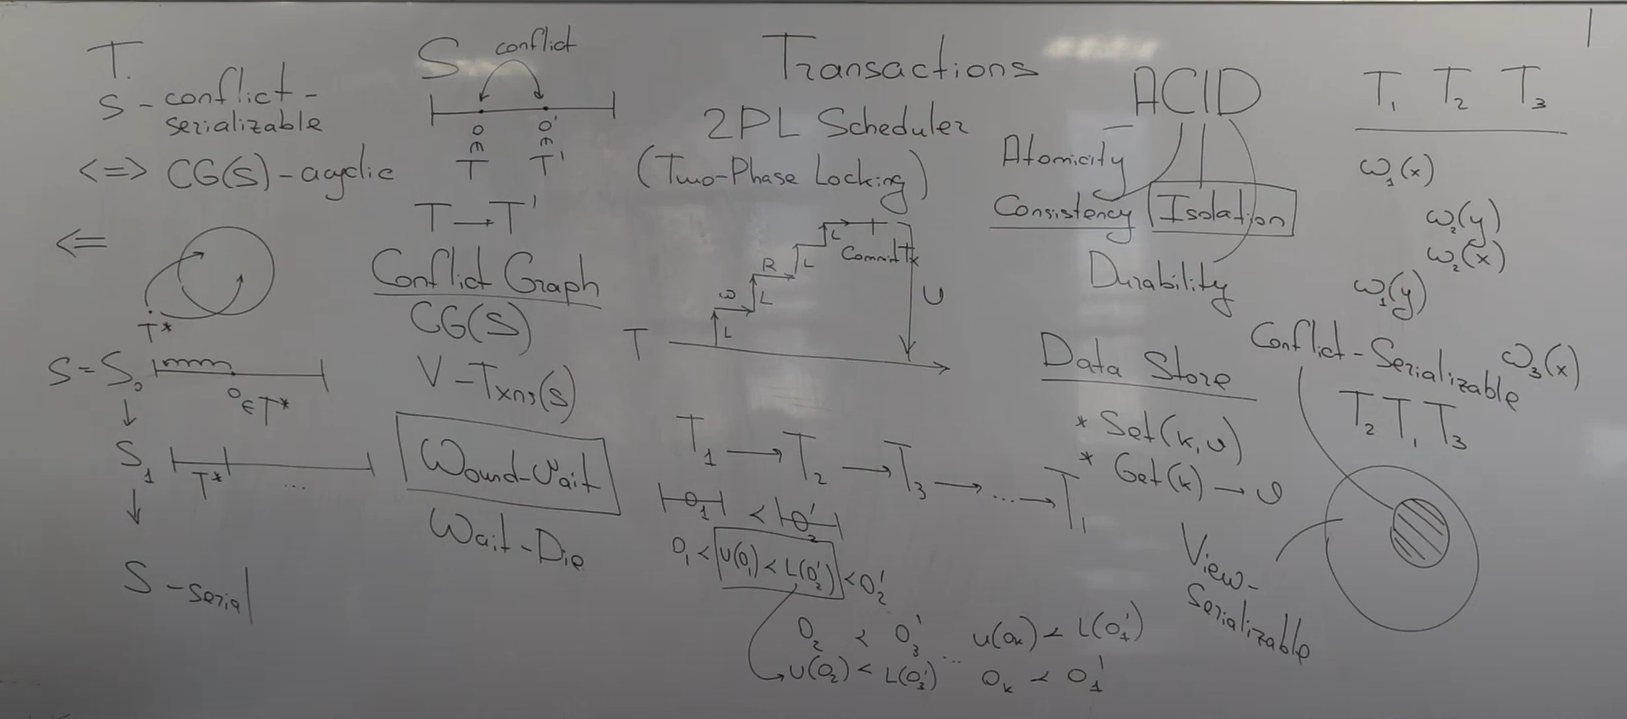 T.
S - conflict-
serializable
<=> CG(S) - acyclic
<=
T*
S = S₀
O ∈ T*
↓
S₁
T*
...
↓
S - serial
S conflict
O O'
∈ ∈
T T'
T → T'
Conflict Graph
CG(S)
V - Txns(S)
Wound-Wait
Wait-Die
Transactions
2PL Scheduler
(Two-Phase Locking)
T
L ω L R L L Commit Tx U
T₁ → T₂ → T₃ → ... → T₁
O₁ < O₂'
O₁ < U(O₁) < L(O₂') < O₂'
O₂ < O₃' U(Oₖ) < L(O₁')
U(O₂) < L(O₃') ... Oₖ < O₁'
ACID
Atomicity
Consistency Isolation
Durability
Data Store
* Set(k, v)
* Get(k) → v
T₁ T₂ T₃
ω₁(x)
ω₂(y)
ω₂(x)
ω₁(y)
ω₃(x)
Conflict-Serializable
T₂ T₁ T₃
View-
Serializable